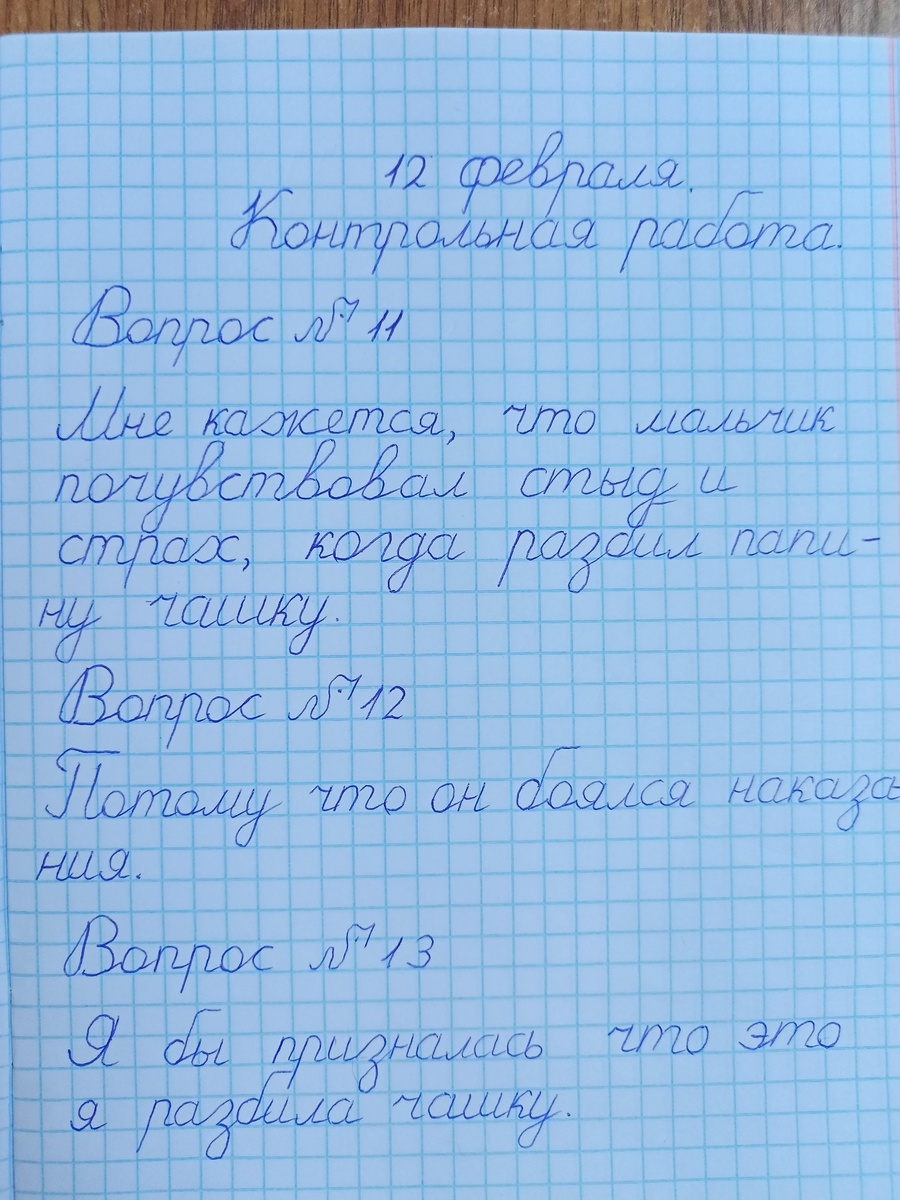 12 февраля.
Контрольная работа.
Вопрос № 11
Мне кажется, что мальчик
почувствовал стыд и
страх, когда разбил папи-
ну чашку.
Вопрос № 12
Потому что он боялся наказа
ния.
Вопрос № 13
Я бы призналась что это
я разбила чашку.